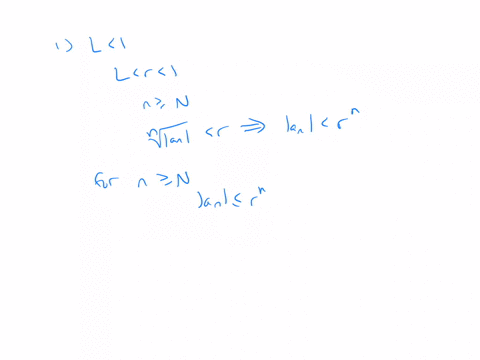 1) L < 1
L < r < 1
n ≥ N
ⁿ√|aₙ| < r ⇒ |aₙ| < rⁿ
for n ≥ N
|aₙ| ≤ rⁿ